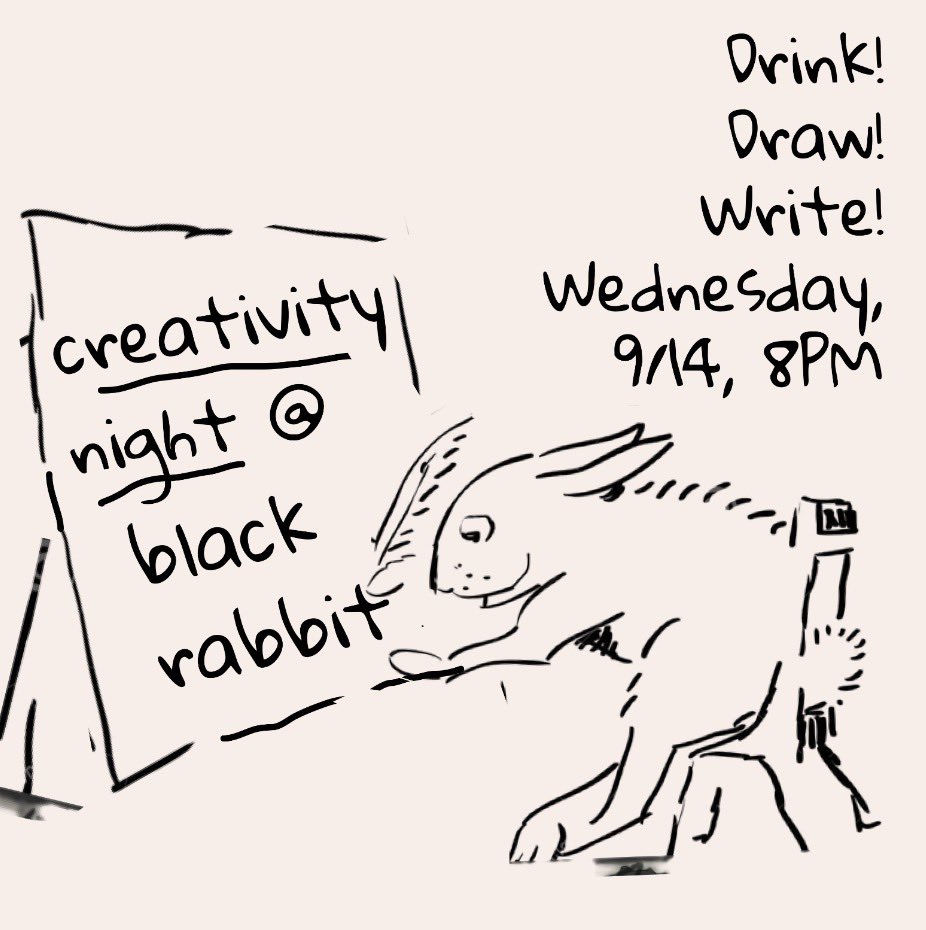 Drink!
Draw!
Write!
Wednesday,
9/14, 8PM
creativity
night @
black
rabbit